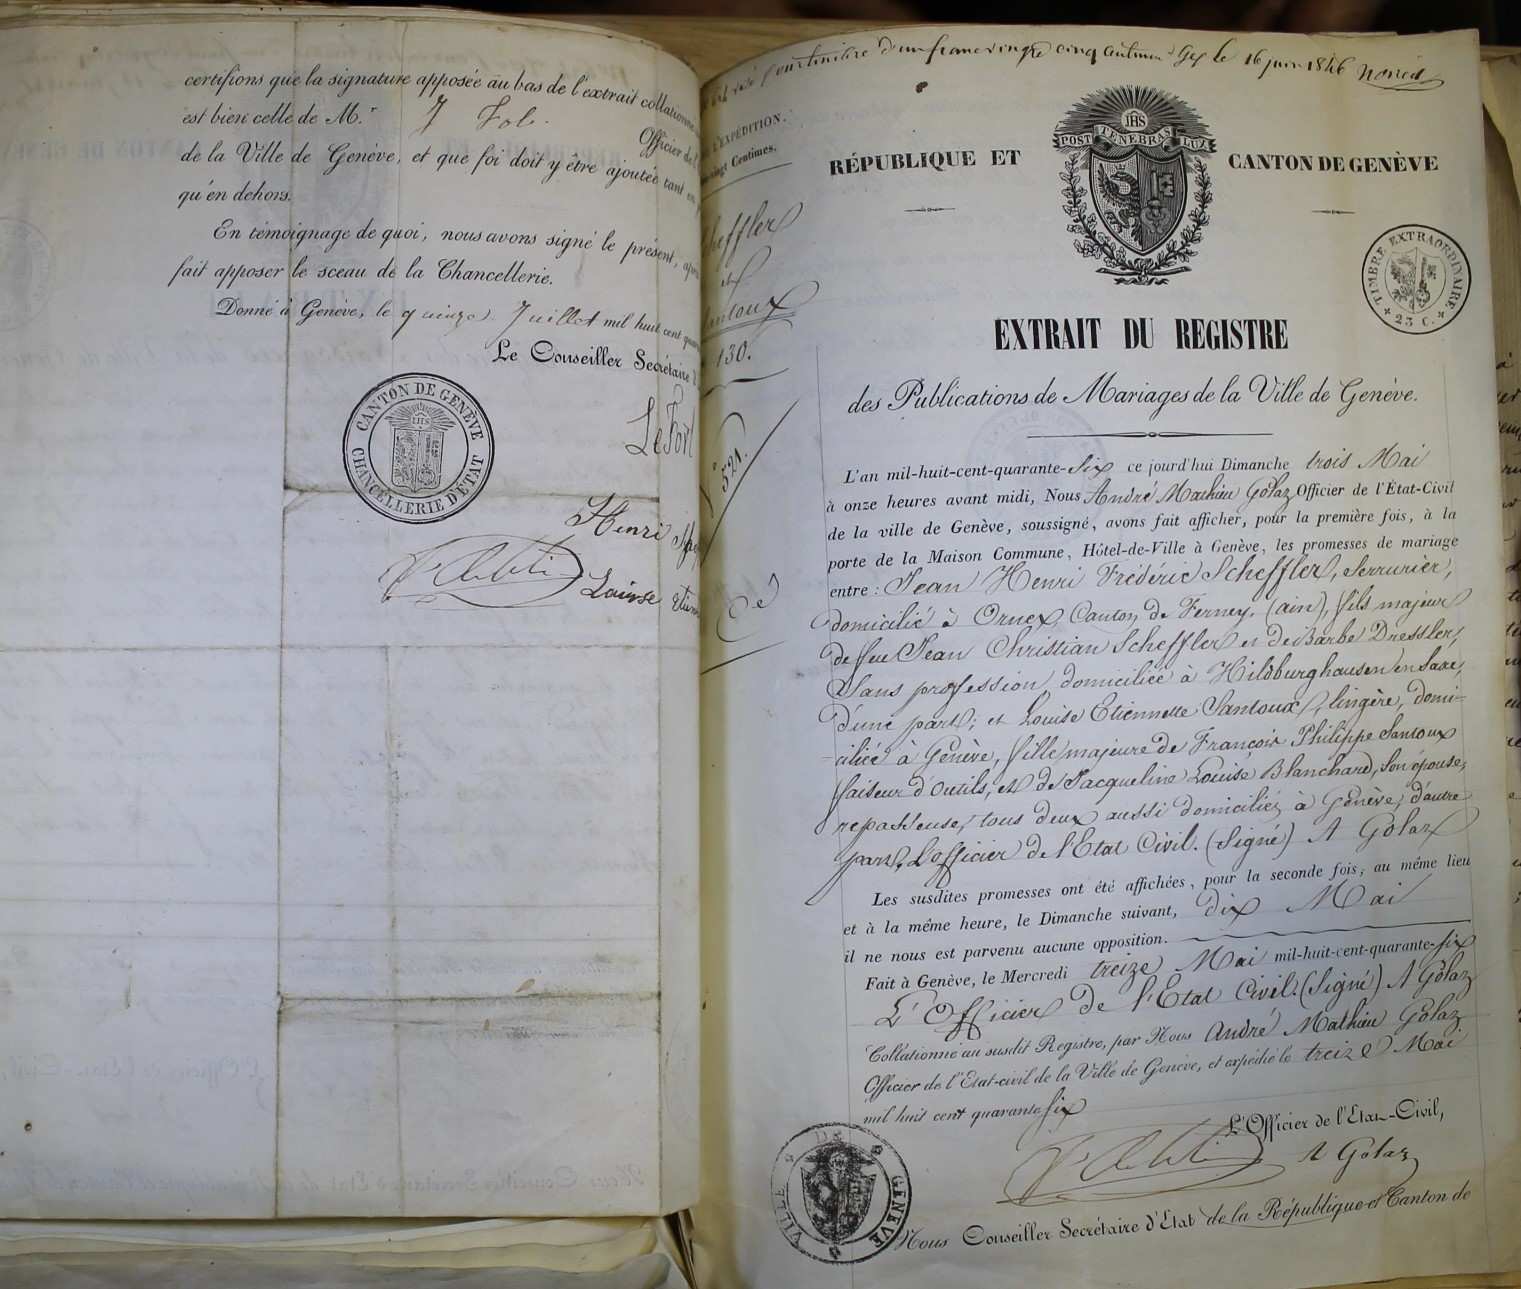 certifions que la signature apposée au bas de l'extrait collationné
est bien celle de M.r J
Officier de l'
de la Ville de Genève, et que foi doit y être ajoutée tant en
qu'en dehors.
En témoignage de quoi, nous avons signé le présent,
fait apposer le sceau de la Chancellerie.
Donné à Genève, le quinze Juillet mil huit cent
Le Conseiller Secrétaire d'
Le Fort
CANTON DE GENÈVE
CHANCELLERIE D'ÉTAT
Henri
Louise
pour timbre d'un franc vingt cinq centimes Gex le 16 juin 1846
L'EXPÉDITION.
vingt Centimes.
Scheffler
et
Santoux
130.
521.
IHS
POST TENEBRAS LUX
RÉPUBLIQUE ET CANTON DE GENÈVE
TIMBRE EXTRAORDINAIRE
25 C.
EXTRAIT DU REGISTRE
des Publications de Mariages de la Ville de Genève.
L'an mil-huit-cent-quarante-six ce jourd'hui Dimanche trois Mai
à onze heures avant midi, Nous André Mathieu Golaz Officier de l'État-Civil
de la ville de Genève, soussigné, avons fait afficher, pour la première fois, à la
porte de la Maison Commune, Hôtel-de-Ville à Genève, les promesses de mariage
entre : Jean Henri Frédéric Scheffler, Serrurier,
domicilié à Ornex, Canton de Ferney, (ain), fils majeur
de feu Jean Christian Scheffler et de Barbe Dressler,
Sans profession, domiciliée à Hildburghausen en Saxe,
d'une part; et Louise Etiennette Santoux, lingère, domi-
-ciliée à Genève, fille majeure de François Philippe Santoux
faiseur d'outils, et de Jacqueline Louise Blanchard, son épouse,
repasseuse, tous deux aussi domiciliés à Genève, d'autre
part, L'officier de l'Etat Civil. (Signé) A Golaz
Les susdites promesses ont été affichées, pour la seconde fois, au même lieu
et à la même heure, le Dimanche suivant, dix Mai
il ne nous est parvenu aucune opposition.
Fait à Genève, le Mercredi treize Mai mil-huit-cent-quarante-six
L'Officier de l'Etat Civil. (Signé) A Golaz
Collationné au susdit Registre, par Nous André Mathieu Golaz
Officier de l'Etat-civil de la Ville de Genève, et expédié le treize Mai
mil huit cent quarante six
L'Officier de l'Etat-Civil,
A Golaz
VILLE DE GENÈVE
Nous Conseiller Secrétaire d'Etat de la République et Canton de